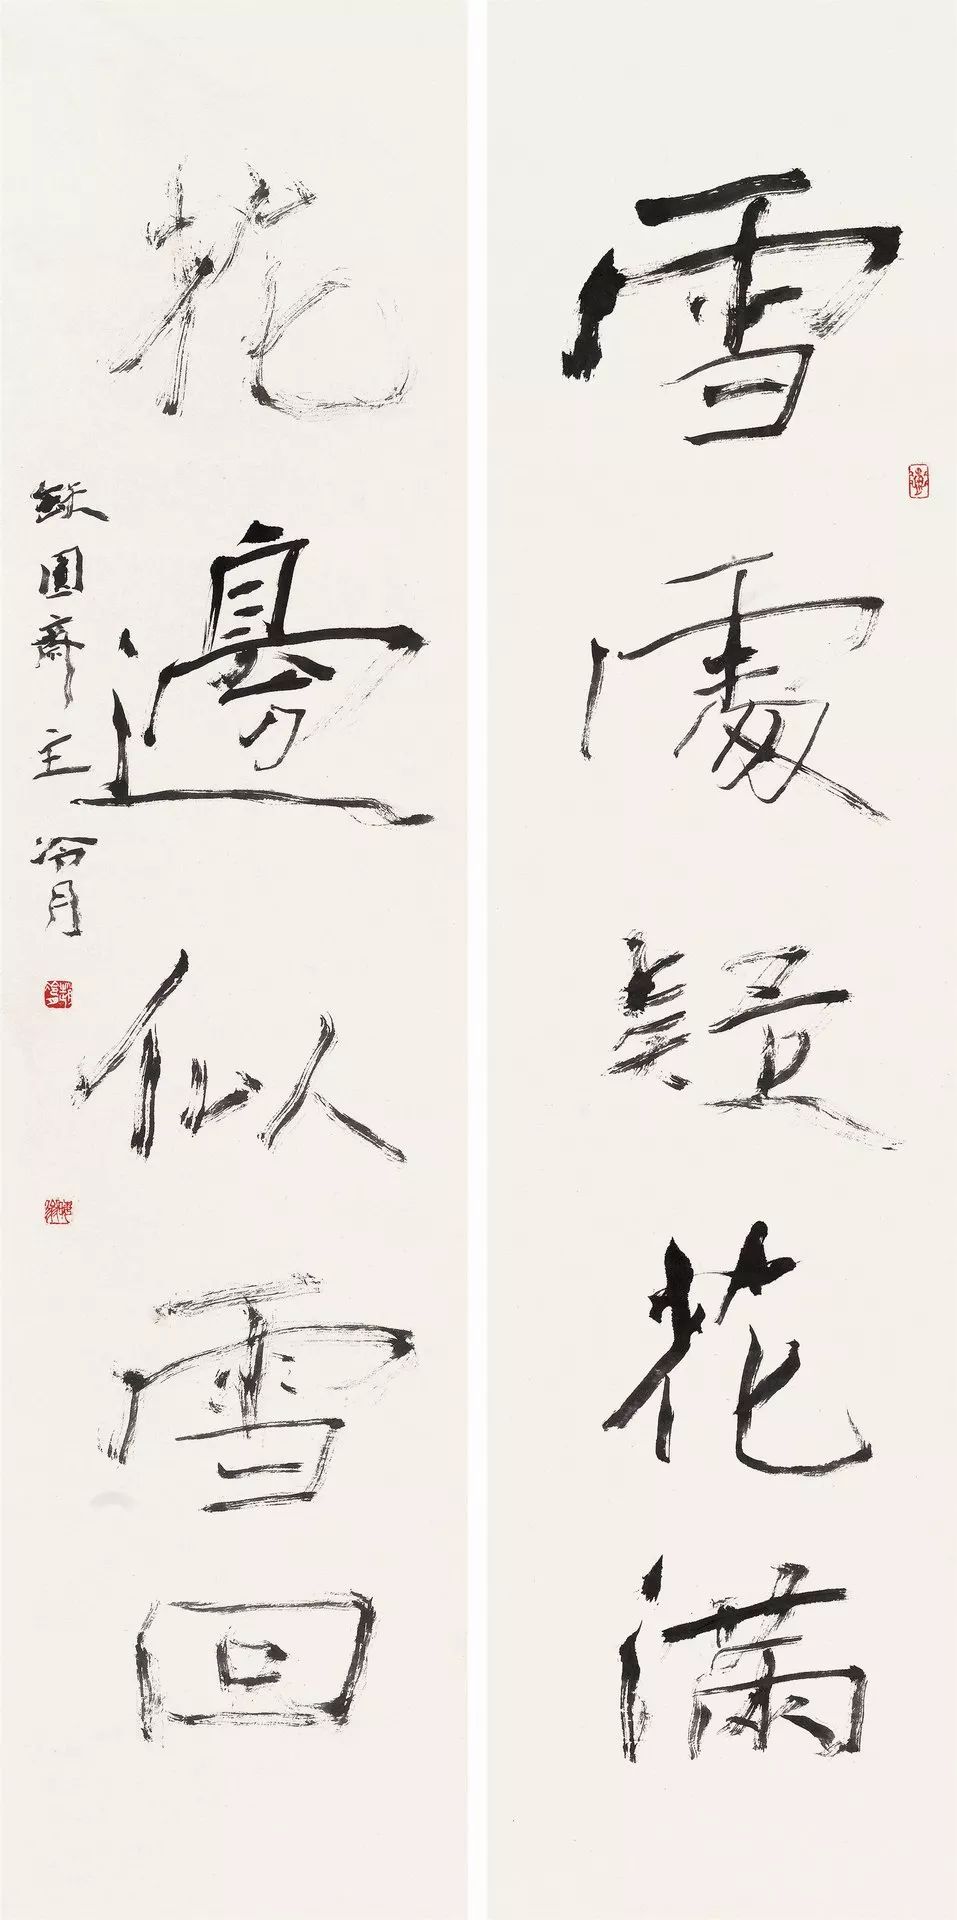 雪處疑花滿
花邊似雪回
缺圓齋主 冷月